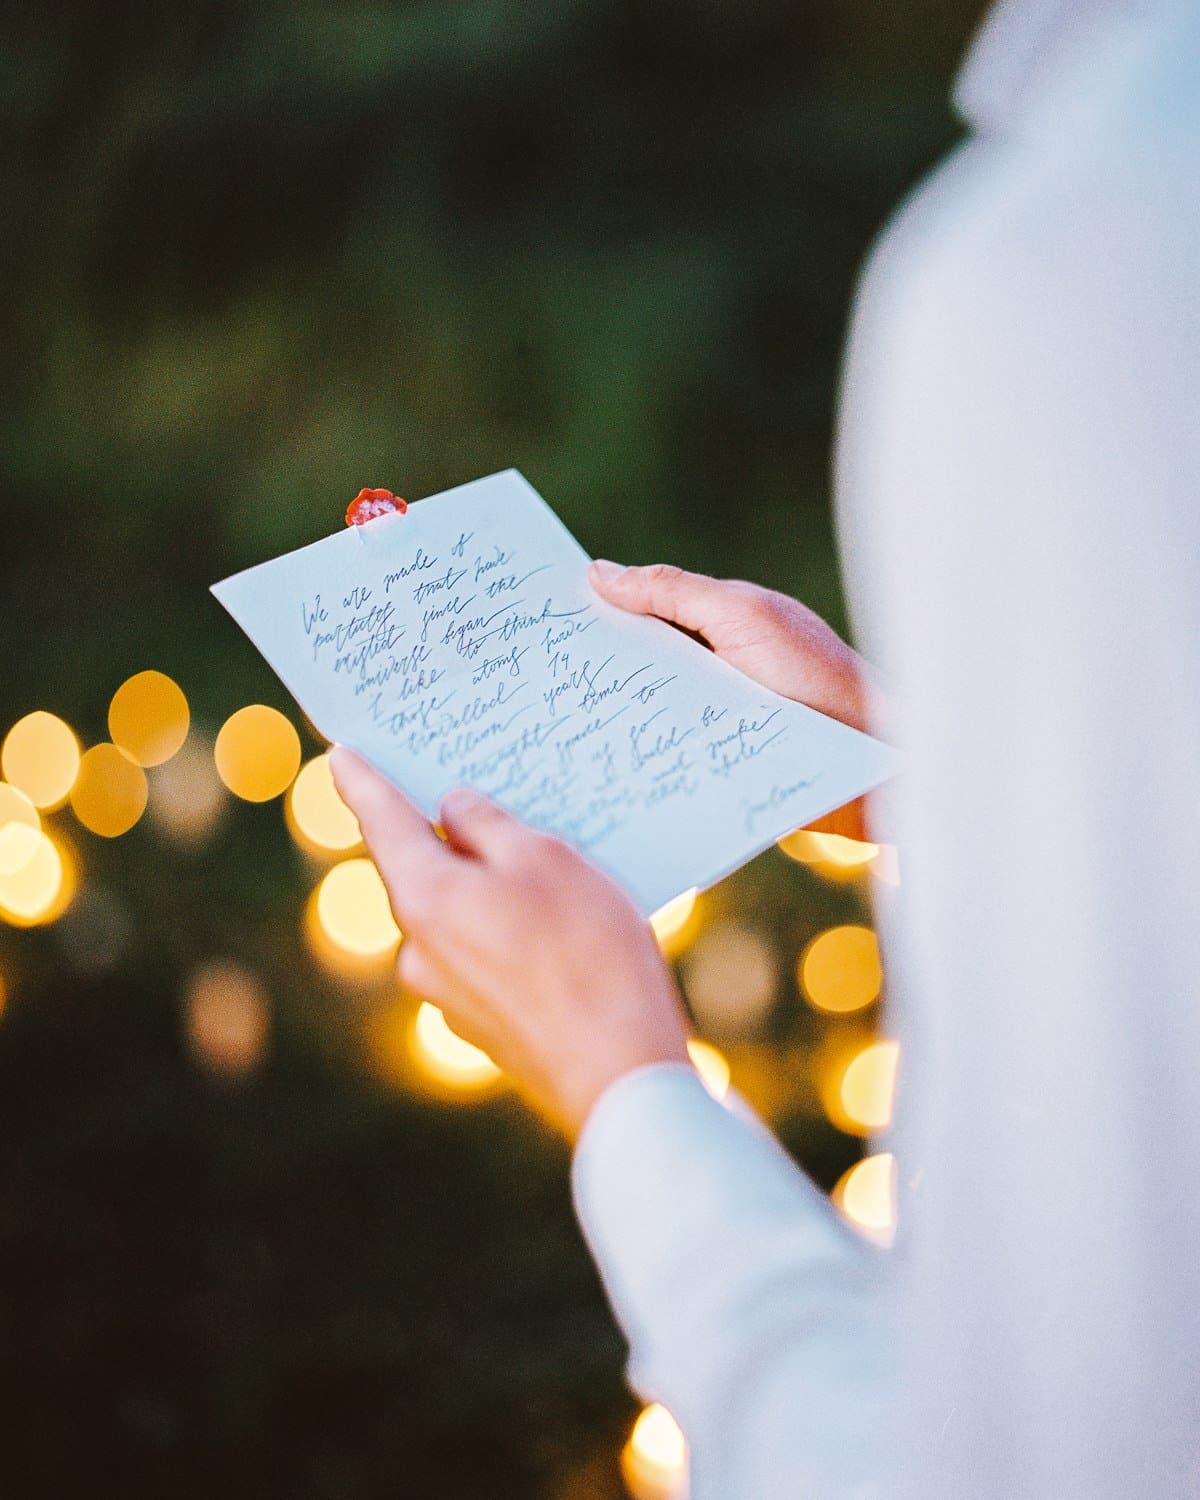 We are made of
particles that have
existed since the
universe began
I like to think
those atoms have
travelled 14
billion years
through time
and space to
create us so
that we could be
together and make
each other whole...